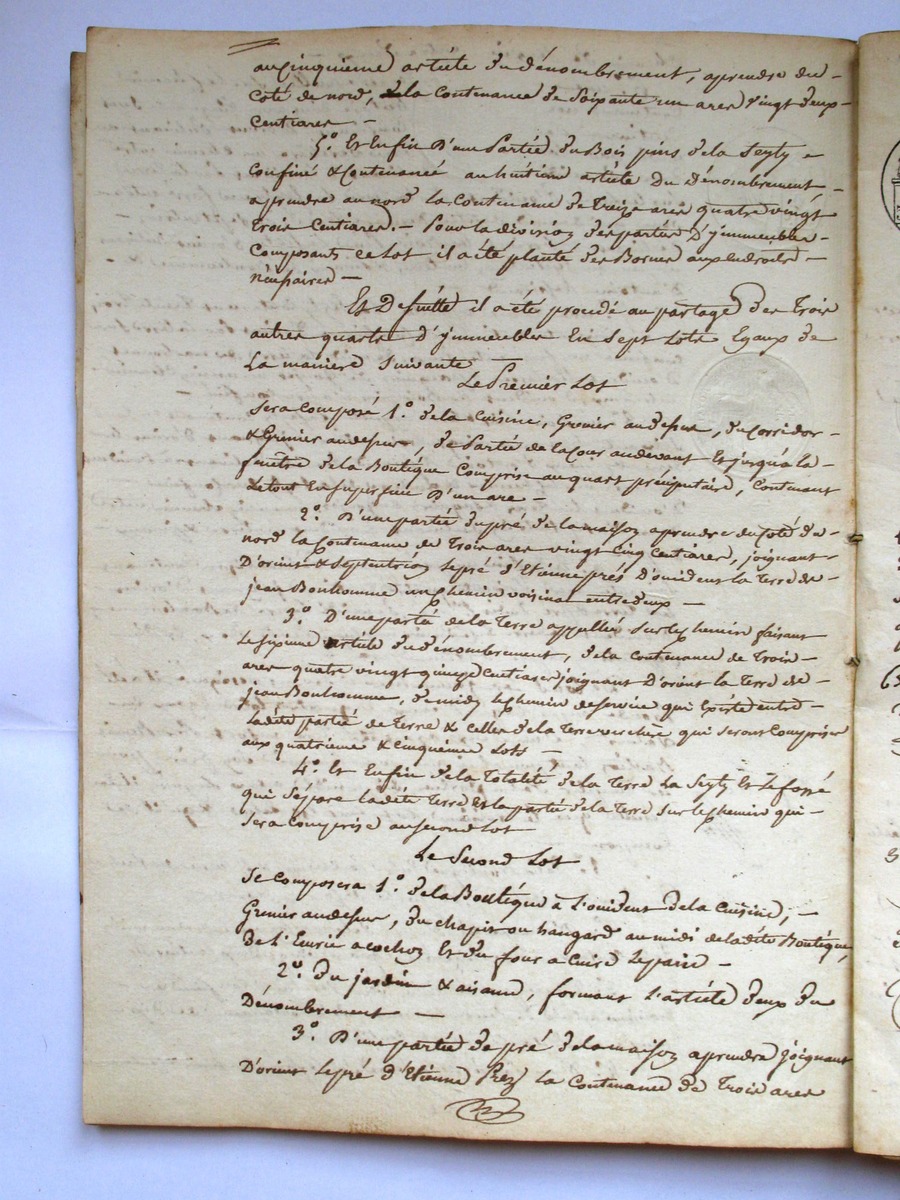 au cinquieme article du dénombrement, aprendre du
coté de nord, de la contenance de soixante un ares vingt deux
centiares -
5.° Et enfin d'une Partie du Bois pins de la Seyty
confiné & contenancé au huitieme article du dénombrement,
aprendre au nord la contenance de treize ares quatre vingt
trois centiares. - Pour la division des parties d'jmmeubles
composants ce lot il a été planté des Bornes aux endroits
nécessaires -
Et De suitte il a été procédé au partage des trois
autres quarts d'jmmeubles En sept Lots Egaux de
la maniere suivante
Le Premier Lot
sera composé 1.° de la cuisine, Grenier au dessus, du corridor
& Grenier au dessus, de Partie de la cour au devant Et jusqu'a la
fenêtre de la Boutique comprise au quart préciputaire, contenant
le tout En superficie D'un are -
2.° D'une partie du pré de la maison aprendre du coté du
nord la contenance de trois ares vingt cinq centiares, joignant
D'orient & septentrion le pré d'Etienne prés D'occident la terre de
jean Bonhomme un chemin voisinal entre deux -
3.° D'une partie de la Terre appellée sur le chemin faisant
le sixieme article du dénombrement, de la contenance de trois
ares quatre vingt quinze centiares joignant D'orient la terre de
jean Bonhomme, de midy le chemin de service qui Existe entre
la dite partie de terre & celle de la terre verchere qui seront comprises
aux quatrieme & cinquieme Lots -
4.° Et Enfin de la totalité de la terre La Seyty Et le fossé
qui sépare la dite terre Et la partie de la terre sur le chemin qui
sera comprise au second lot
Le Second Lot
se composera 1.° de la Boutique à l'occident de la cuisine,
Grenier au dessus, du chapit ou hangard au midi de la dite Boutique,
de l'Ecurie a cochon Et du four a cuire le pain -
2.° du jardin & aisance, formant l'article deux du
Dénombrement -
3.° D'une partie de pré de la maison aprendre joignant
D'orient le pré d'Etienne Prez la contenance de trois ares